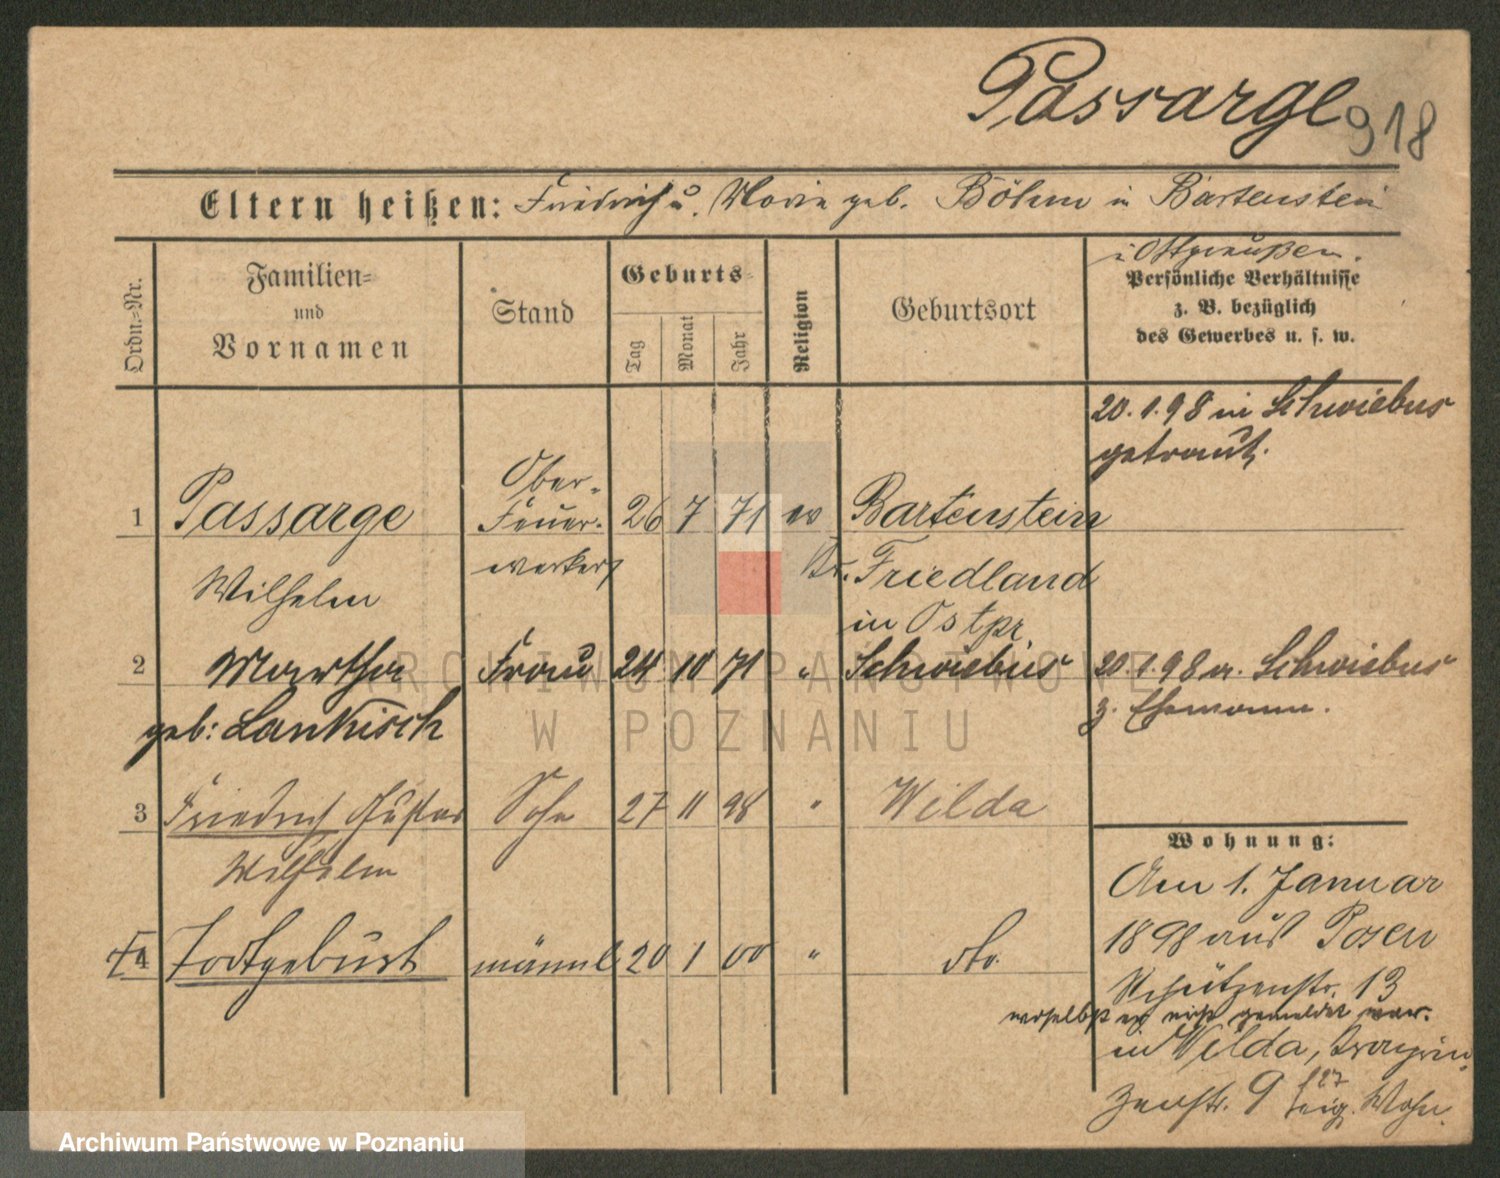 Passarge
918
Eltern heißen: Friedrich u. Marie geb. Böhm in Bartenstein
i/Ostpreußen.
Ordn.=Nr.
Familien=
und
Vornamen
Stand
Geburts=
Tag
Monat
Jahr
Religion
Geburtsort
Persönliche Verhältnisse
z. B. bezüglich
des Gewerbes u. s. w.
20.1.98 in Schwiebus
getraut.
1 Passarge Ober-
Feuer-
werker 26 7 71 ev Bartenstein
Wilhelm
Kr. Friedland
in Ostpr.
2 Martha Frau 24 10 71 " Schwiebus 20.1.98 a. Schwiebus
geb: Lankisch
z. Ehemann.
3 Friedrich Gustav Sohn 27 11 98 " Wilda
Wilhelm
4 Todtgeburt männl 20 1 00 " dto.
Wohnung:
Am 1. Januar
1898 aus Posen
Schützenstr. 13
woselbst er nicht gemeldet war.
in Wilda, Kronprin
zenstr. 9 Wohn.
ARCHIWUM PAŃSTWOWE
W POZNANIU
Archiwum Państwowe w Poznaniu